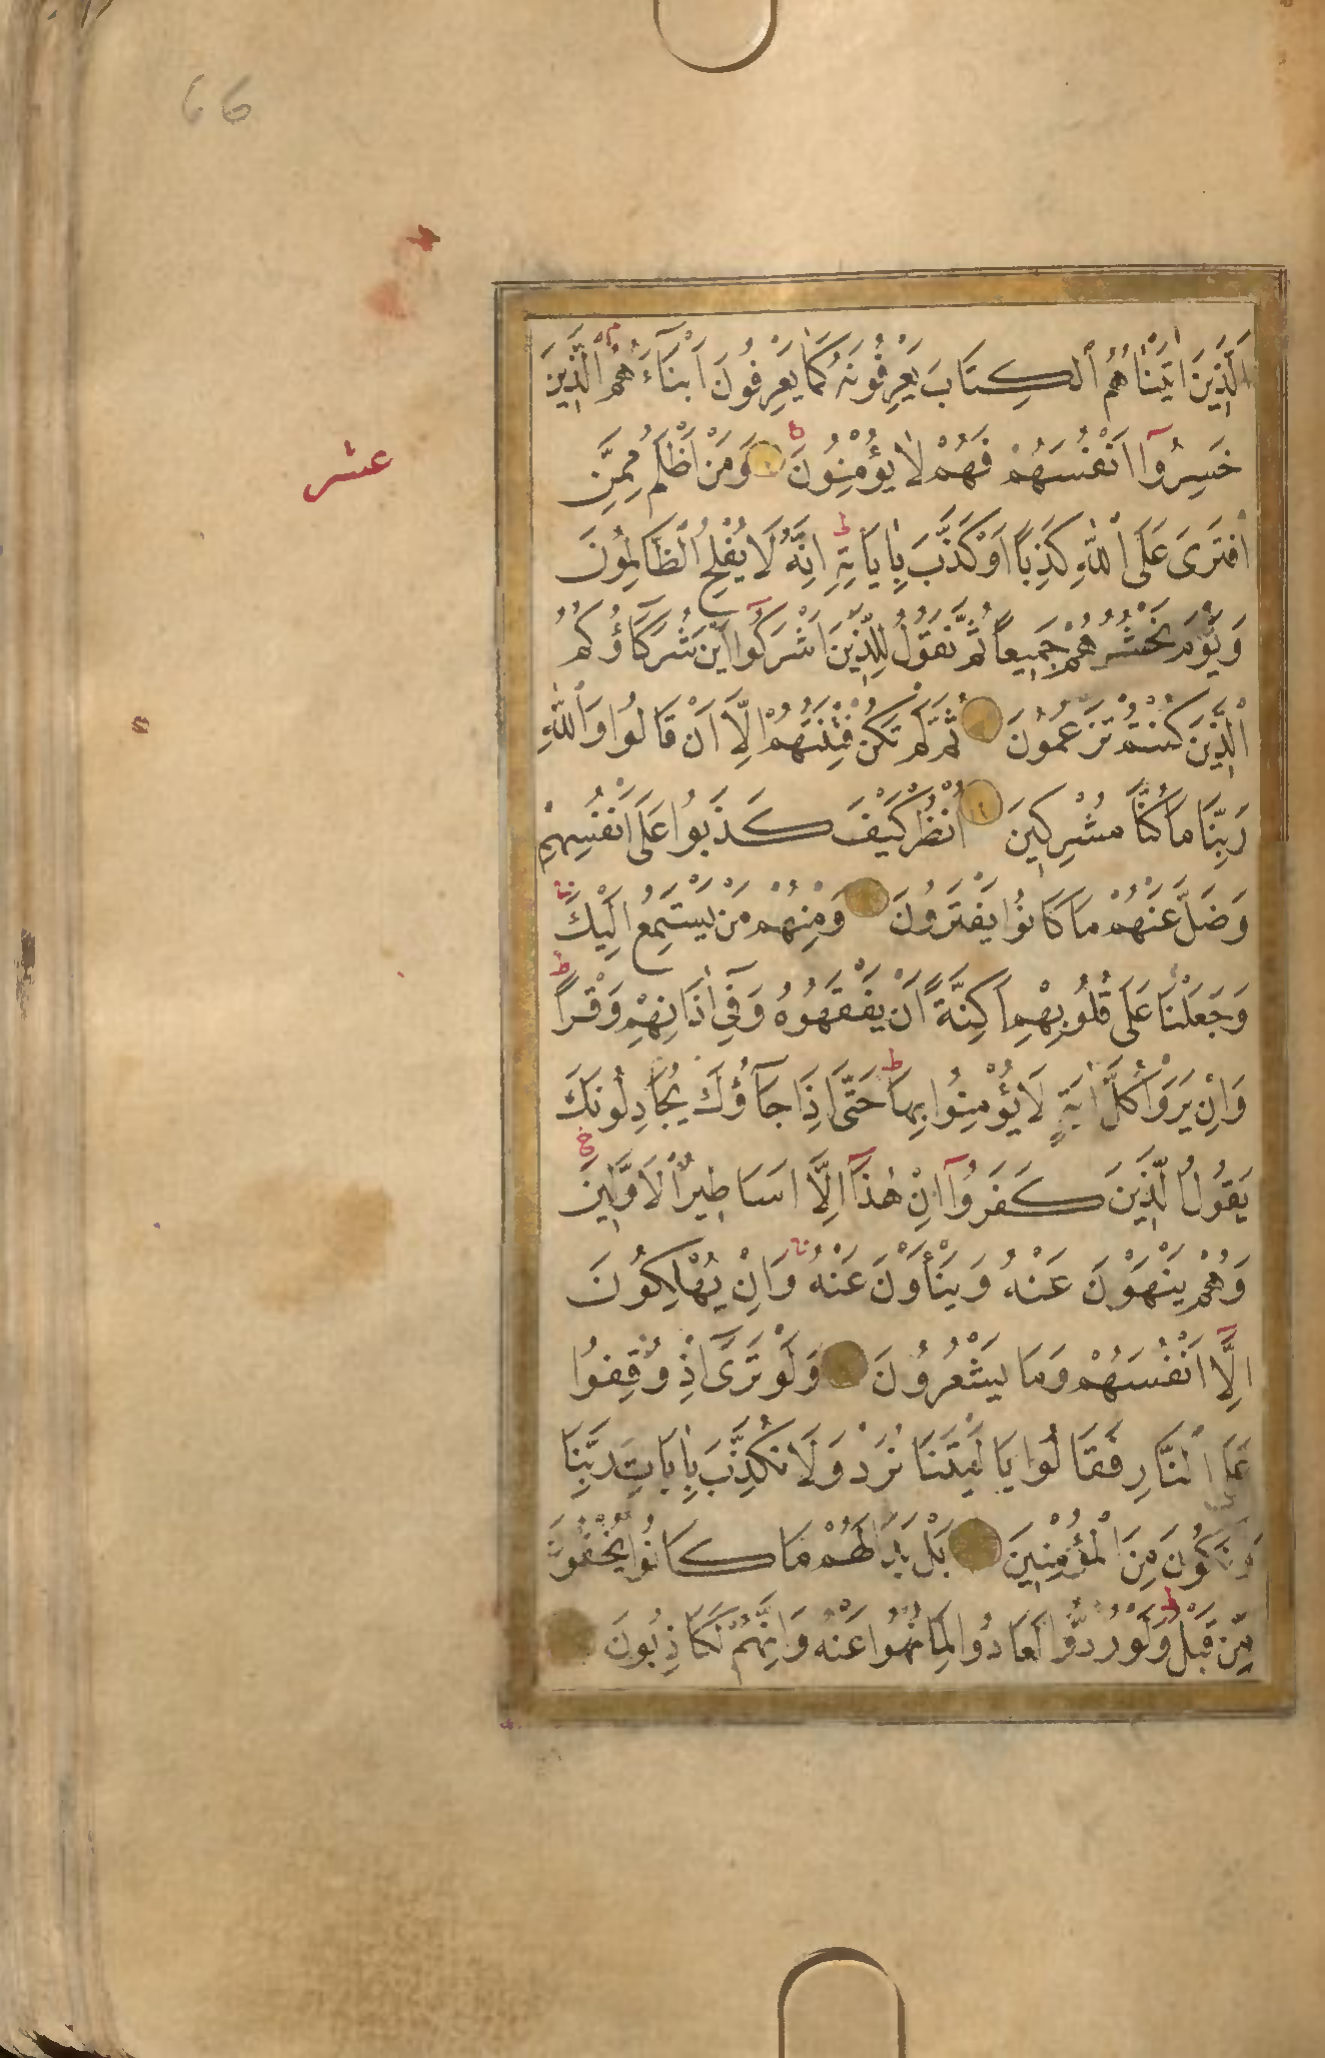 66
اَلَّذِينَ اٰتَيْنَاهُمُ الْكِتَابَ يَعْرِفُونَهُ كَمَا يَعْرِفُونَ اَبْنَاءَهُمُ الَّذِينَ
خَسِرُوا اَنْفُسَهُمْ فَهُمْ لَا يُؤْمِنُونَ وَمَنْ اَظْلَمُ مِمَّنِ
عشر
افْتَرَى عَلَى اللّٰهِ كَذِبًا اَوْ كَذَّبَ بِاٰيَاتِهِ اِنَّهُ لَا يُفْلِحُ الظَّالِمُونَ
وَيَوْمَ نَحْشُرُهُمْ جَمِيعًا ثُمَّ نَقُولُ لِلَّذِينَ اَشْرَكُوا اَيْنَ شُرَكَاؤُكُمُ
الَّذِينَ كُنْتُمْ تَزْعُمُونَ ثُمَّ لَمْ تَكُنْ فِتْنَتُهُمْ اِلَّا اَنْ قَالُوا وَاللّٰهِ
رَبِّنَا مَا كُنَّا مُشْرِكِينَ اُنْظُرْ كَيْفَ كَذَبُوا عَلَى اَنْفُسِهِمْ
وَضَلَّ عَنْهُمْ مَا كَانُوا يَفْتَرُونَ وَمِنْهُمْ مَنْ يَسْتَمِعُ اِلَيْكَ
وَجَعَلْنَا عَلَى قُلُوبِهِمْ اَكِنَّةً اَنْ يَفْقَهُوهُ وَفِي اٰذَانِهِمْ وَقْرًا
وَاِنْ يَرَوْا كُلَّ اٰيَةٍ لَا يُؤْمِنُوا بِهَا حَتَّى اِذَا جَاؤُكَ يُجَادِلُونَكَ
يَقُولُ الَّذِينَ كَفَرُوا اِنْ هٰذَا اِلَّا اَسَاطِيرُ الْاَوَّلِينَ
وَهُمْ يَنْهَوْنَ عَنْهُ وَيَنْأَوْنَ عَنْهُ وَاِنْ يُهْلِكُونَ
اِلَّا اَنْفُسَهُمْ وَمَا يَشْعُرُونَ وَلَوْ تَرَى اِذْ وُقِفُوا
عَلَى النَّارِ فَقَالُوا يَا لَيْتَنَا نُرَدُّ وَلَا نُكَذِّبَ بِاٰيَاتِ رَبِّنَا
وَنَكُونَ مِنَ الْمُؤْمِنِينَ بَلْ بَدَا لَهُمْ مَا كَانُوا يُخْفُونَ
مِنْ قَبْلُ وَلَوْ رُدُّوا لَعَادُوا لِمَا نُهُوا عَنْهُ وَاِنَّهُمْ لَكَاذِبُونَ